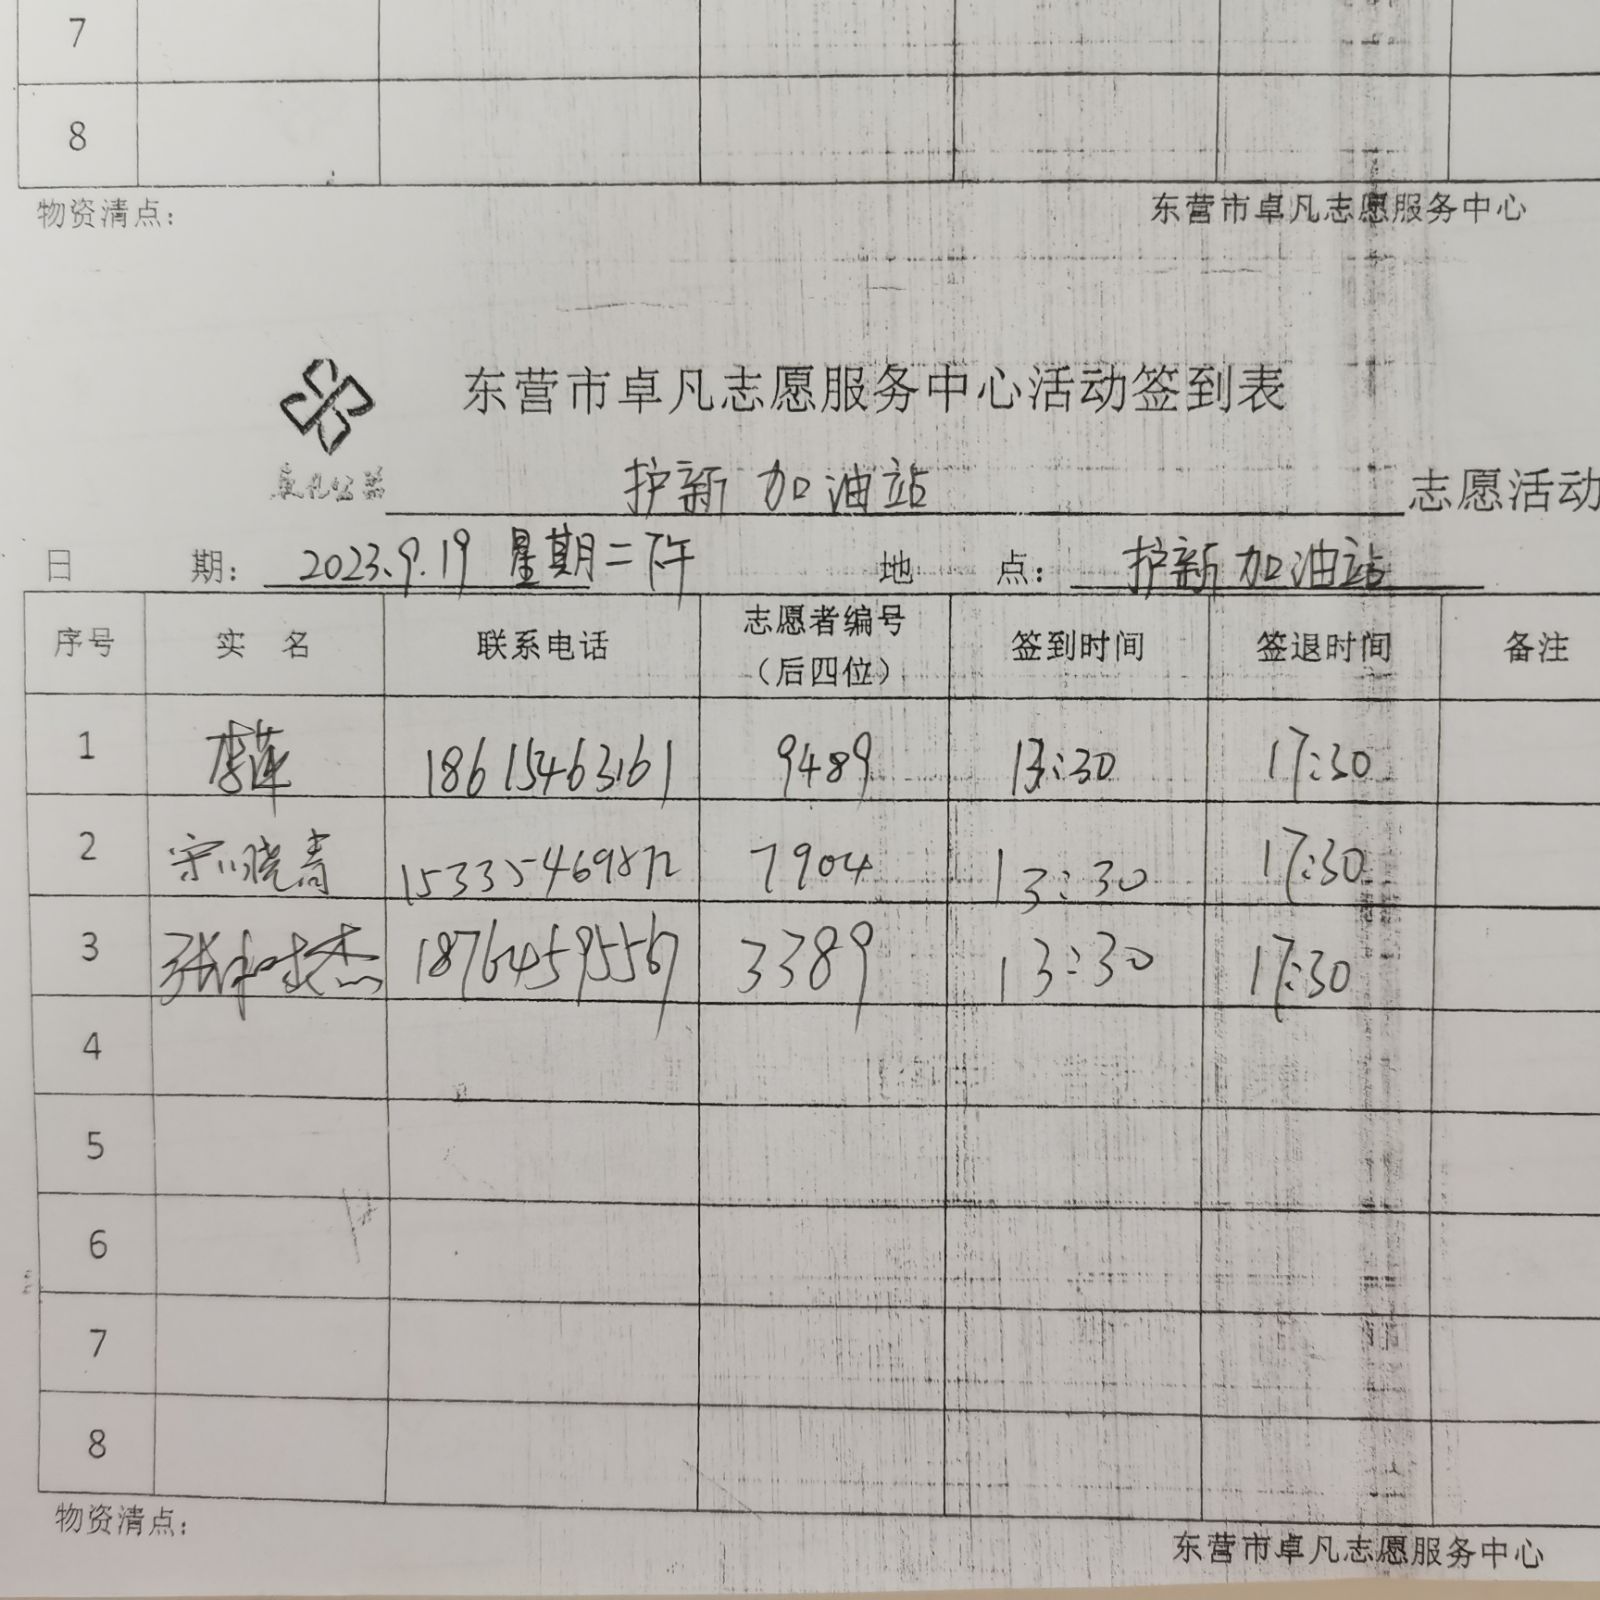 7
8
物资清点：
东营市卓凡志愿服务中心
东营市卓凡志愿服务中心活动签到表
卓凡公益
护新加油站 志愿活动
日 期： 2023.9.19 星期二下午 地 点： 护新加油站
序号 实 名 联系电话 志愿者编号（后四位） 签到时间 签退时间 备注
1 李莲 18615463161 9489 13:30 17:30
2 宋晓青 7904 13:30 17:30
3 杰 18764595567 3389 13:30 17:30
4
5
6
7
8
物资清点：
东营市卓凡志愿服务中心